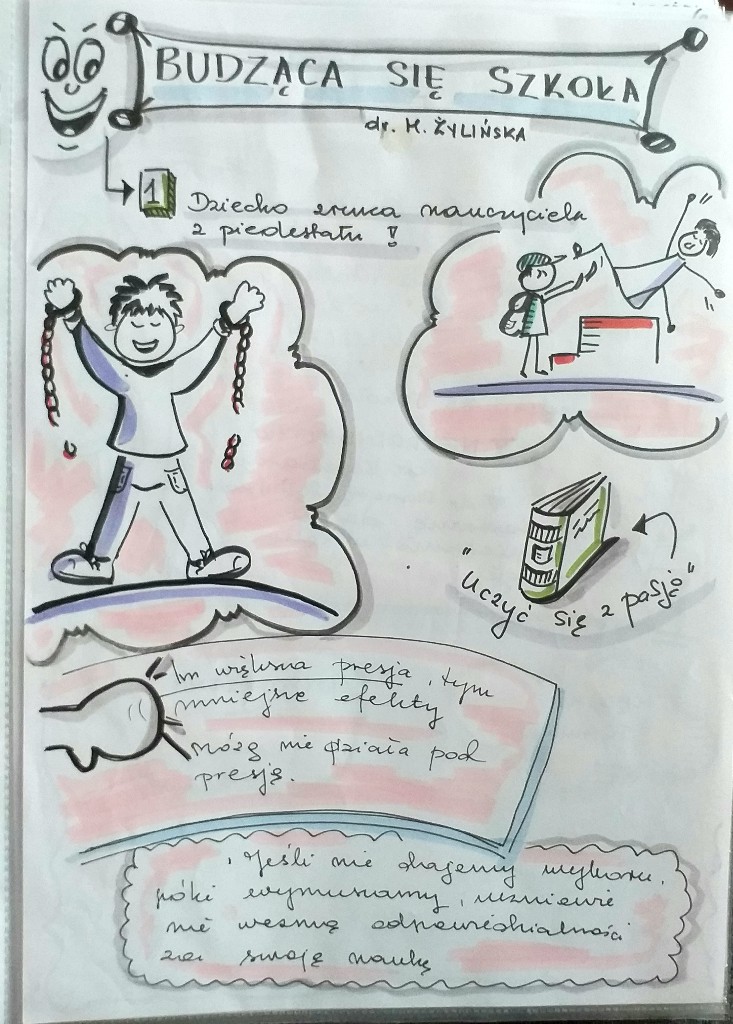 BUDZĄCA SIĘ SZKOŁA
dr. M. ŻYLIŃSKA
1 Dziecko zrzuca nauczyciela
z piedestału !
"Uczyć się z pasją"
Im większa presja, tym
mniejsze efekty
Mózg nie działa pod
presją.
Jeśli nie dajemy wyboru,
póki wymuszamy, uczniowie
nie wezmą odpowiedzialności
za swoją naukę